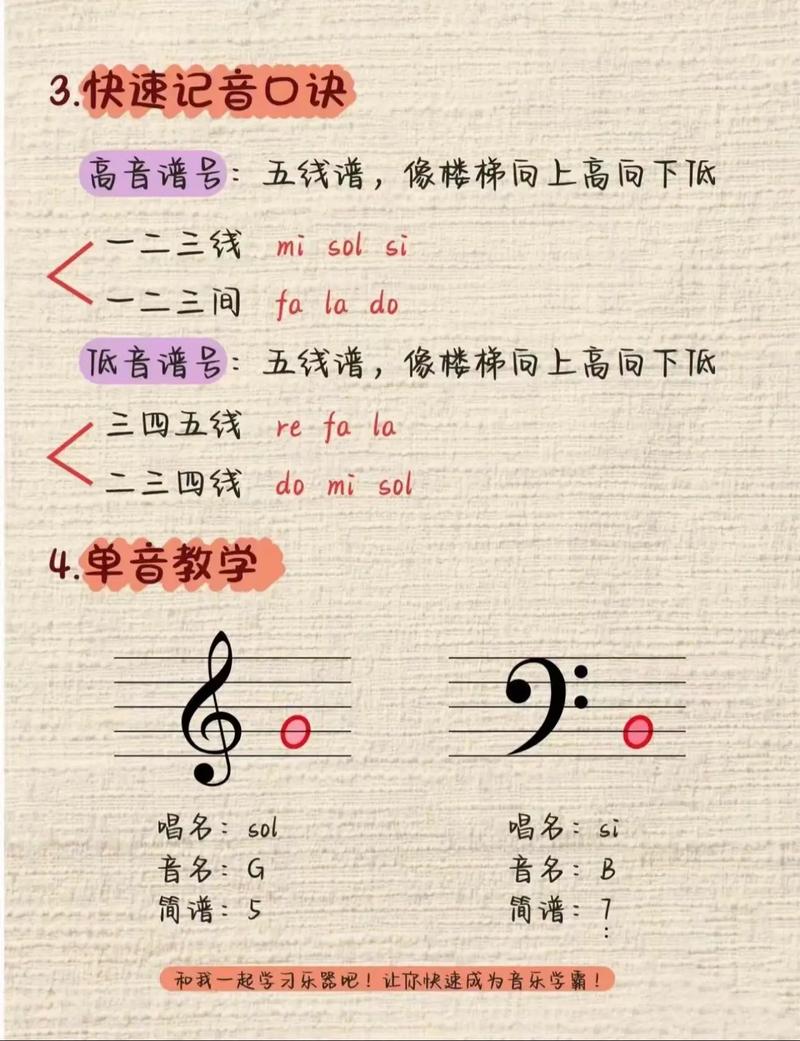 3.快速记音口诀
高音谱号：五线谱，像楼梯向上高向下低
一二三线 mi sol si
一二三间 fa la do
低音谱号：五线谱，像楼梯向上高向下低
三四五线 re fa la
二三四线 do mi sol
4.单音教学
唱名：sol
音名：G
简谱：5
唱名：si
音名：B
简谱：7
和我一起学习乐器吧！让你快速成为音乐学霸！